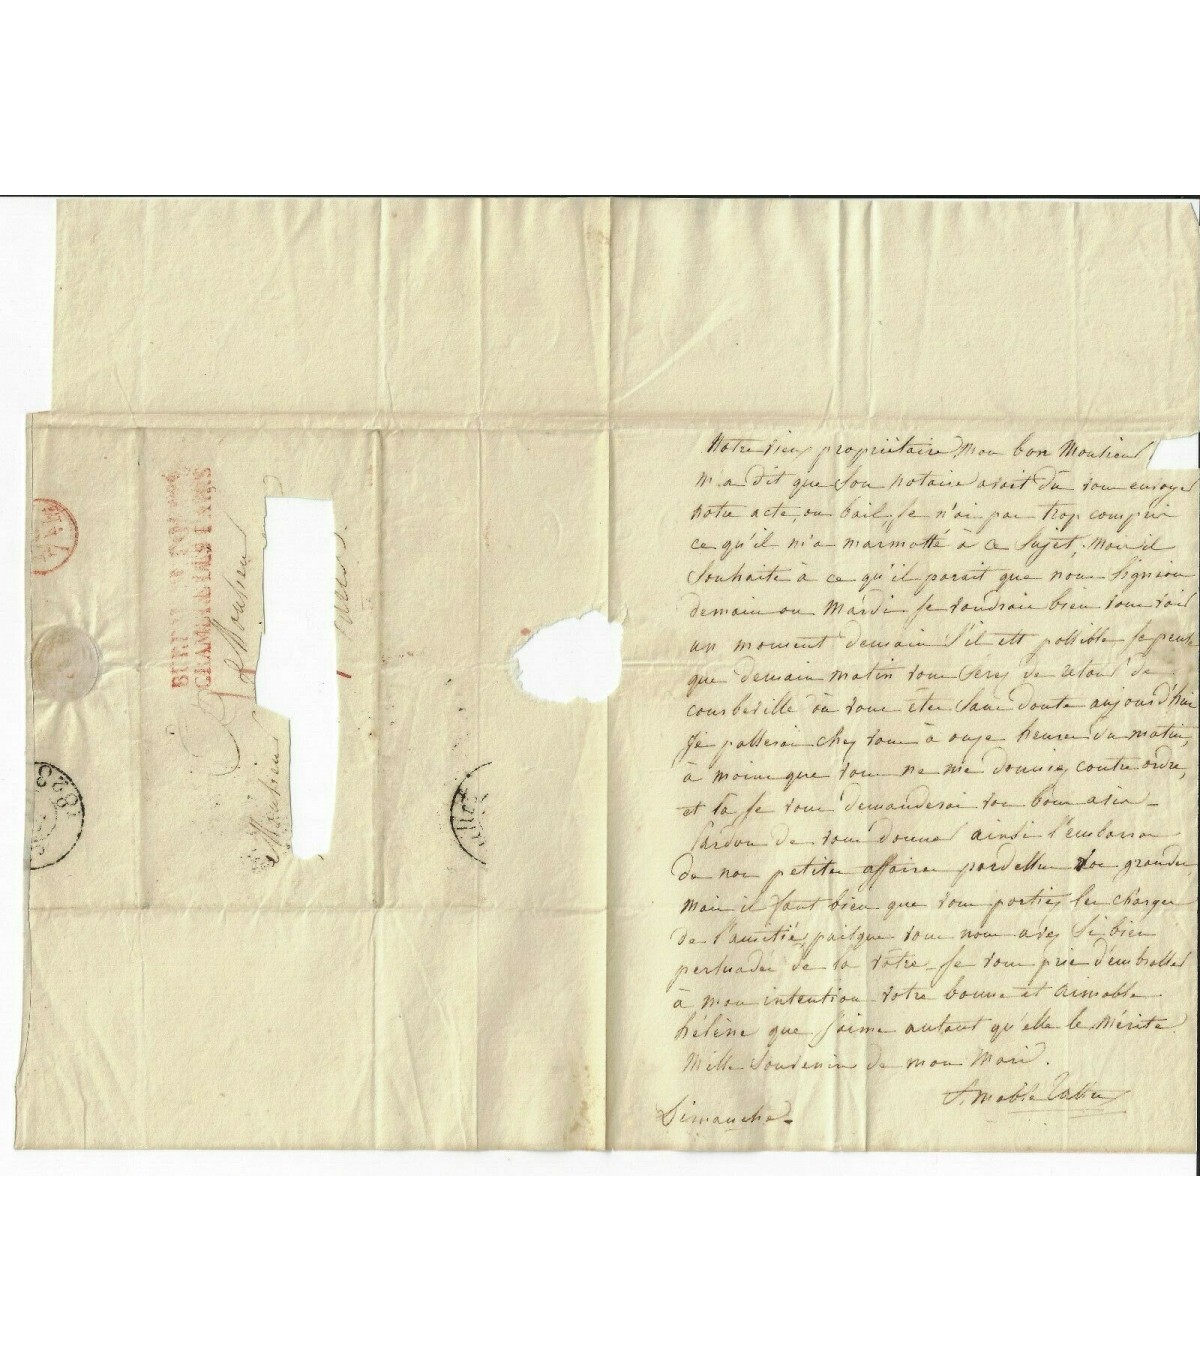 A Monsieur
Monsieur
1828
juillet
BUREAU
CHAMBRE DES PAIRS
Notre vieux propriétaire, mon bon Monsieur
m'a dit que son notaire avait dû vous envoyer
notre acte, ou bail, je n'ai pas trop compris
ce qu'il m'a marmotté à ce sujet, mais il
souhaite à ce qu'il parait que nous signions
demain ou mardi. Je voudrais bien vous voir
un moment demain s'il est possible. Je pense
que demain matin vous serez de retour de
courbeville où vous êtes sans doute aujourd'hui
Je passerai chez vous à onze heures du matin,
à moins que vous ne me donniez contre ordre,
et là je vous demanderai vos bons avis -
Pardon de vous donner ainsi l'embarras
de nos petites affaires pardessus vos grandes,
mais il faut bien que vous portiez les charges
de l'amitié, puisque vous nous avez si bien
persuadés de la vôtre - Je vous prie d'embrasser
à mon intention votre bonne et aimable
hélène que j'aime autant qu'elle le mérite.
Mille souvenirs de mon Mari.
Amable Tastu
Dimanche -